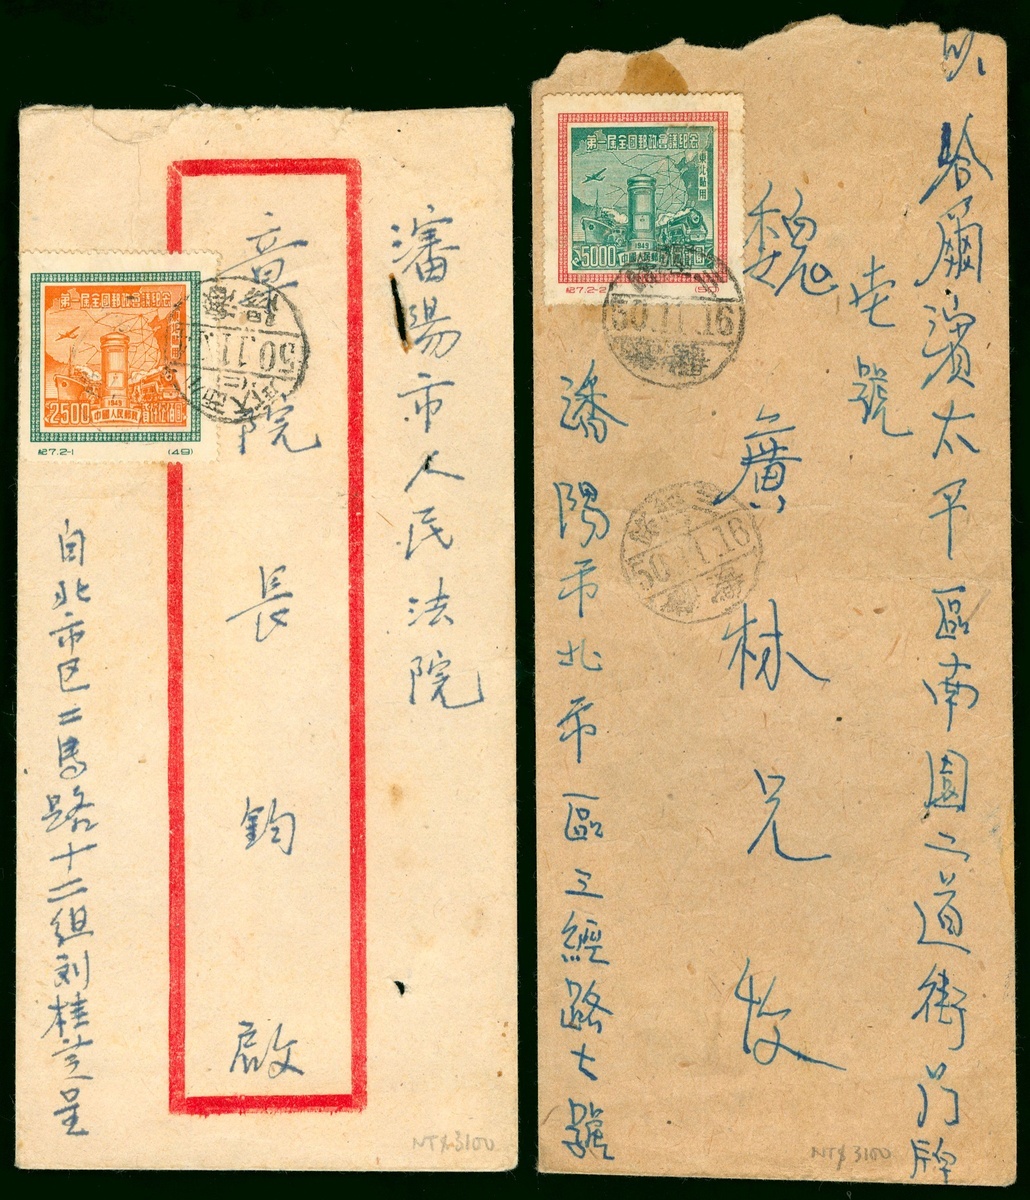 瀋陽市人民法院
院長鈞啟
自北市区二馬路十二組刘桂芝呈
第一屆全國郵政會議紀念
東北貼用
1949
2500
中國人民郵政
紀7.2-1
(49)
50.11.1
NT$3100
哈爾濱太平區南園二道街門牌
号
魏廣林兄收
瀋陽市北市區三經路七號
第一屆全國郵政會議紀念
東北貼用
1949
5000
中國人民郵政
紀7.2-2
50.11.16
50.11.16
NT$3100